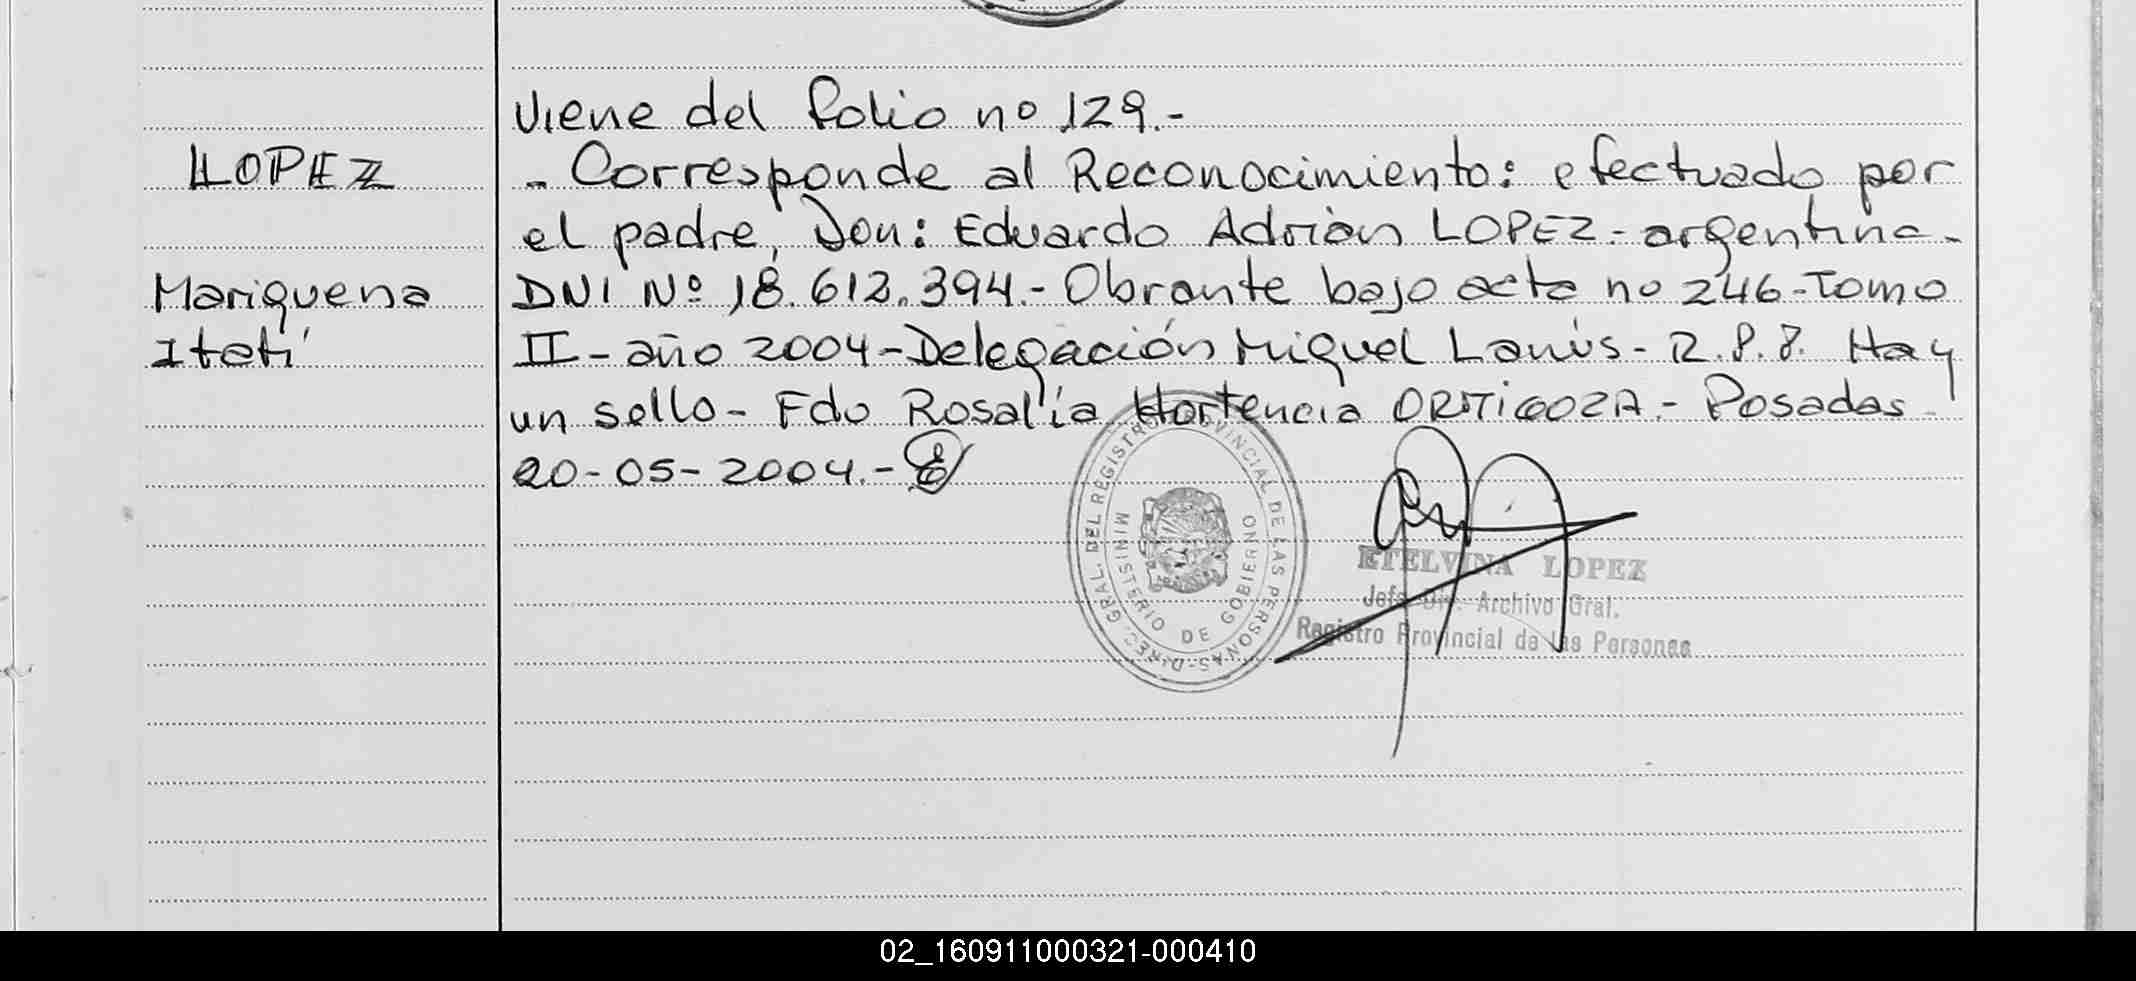 Viene del folio nº 129.-
LOPEZ
- Corresponde al Reconocimiento: efectuado por
el padre, Don: Eduardo Adrián LOPEZ.- argentino-
Mariquena
DNI Nº 18.612.394.- Obrante bajo acta nº 246-Tomo
Itatí
II- año 2004-Delegación Miguel Lanús- R.P.P. Hay
un sello- Fdo Rosalía Hortencia ORTIGOZA.- Posadas-
20-05-2004.-
DIREC. GRAL. DEL REGISTRO PROVINCIAL DE LAS PERSONAS
MINISTERIO DE GOBIERNO
ETELVINA LOPEZ
Jefe Div. Archivo Gral.
Registro Provincial de las Personas
02_160911000321-000410